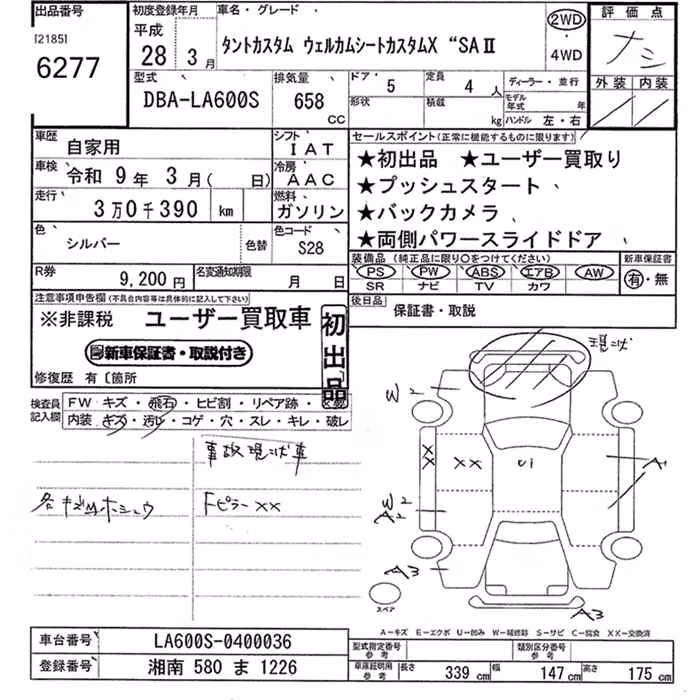 出品番号
[2185]
6277
初度登録年月
平成
28 3月
車名・グレード
タントカスタム ウェルカムシートカスタムX "SAⅡ
2WD
・
4WD
評価点
ナシ
外装 内装
型式
DBA-LA600S
排気量
658
CC
ドア 5
定員 4 人
形状
積載 kg
ディーラー・並行
モデル年式 年
ハンドル 左・右
車歴
自家用
シフト
IAT
車検
令和 9年 3月( 日)
冷房
AAC
走行
3万0千390 km
燃料
ガソリン
色
シルバー
色替
色コード
S28
R券
9,200円
名変通知期限
月 日
セールスポイント(正常に機能するものに限ります)
★初出品 ★ユーザー買取り
★プッシュスタート
★バックカメラ
★両側パワースライドドア
装備品 (純正品に限り〇をつけてください)
PS PW ABS エアB AW
SR ナビ TV カワ
新車保証書
有・無
後日品
保証書・取説
注意事項申告欄(不具合内容等は具体的に記入して下さい)
※非課税 ユーザー買取車
新車保証書・取説付き
初出品
修復歴 有〔箇所
検査員記入欄
FW キズ・飛石・ヒビ割・リペア跡・
内装 キズ・汚レ・コゲ・穴・スレ・キレ・破レ
事故現状車
各キズ凹ホシュウ
Fピラーxx
現状
W2
xx
xx
U1
A
W2
A2
A3
A3
スペア
A-キズ E-エクボ U-凹み W-補修跡 S-サビ C-腐食 XX-交換済
車台番号
LA600S-0400036
登録番号
湘南 580 ま 1226
型式指定番号
参考
類別区分番号
参考
車庫証明用
参考
長さ 339 cm
幅 147 cm
高さ 175 cm